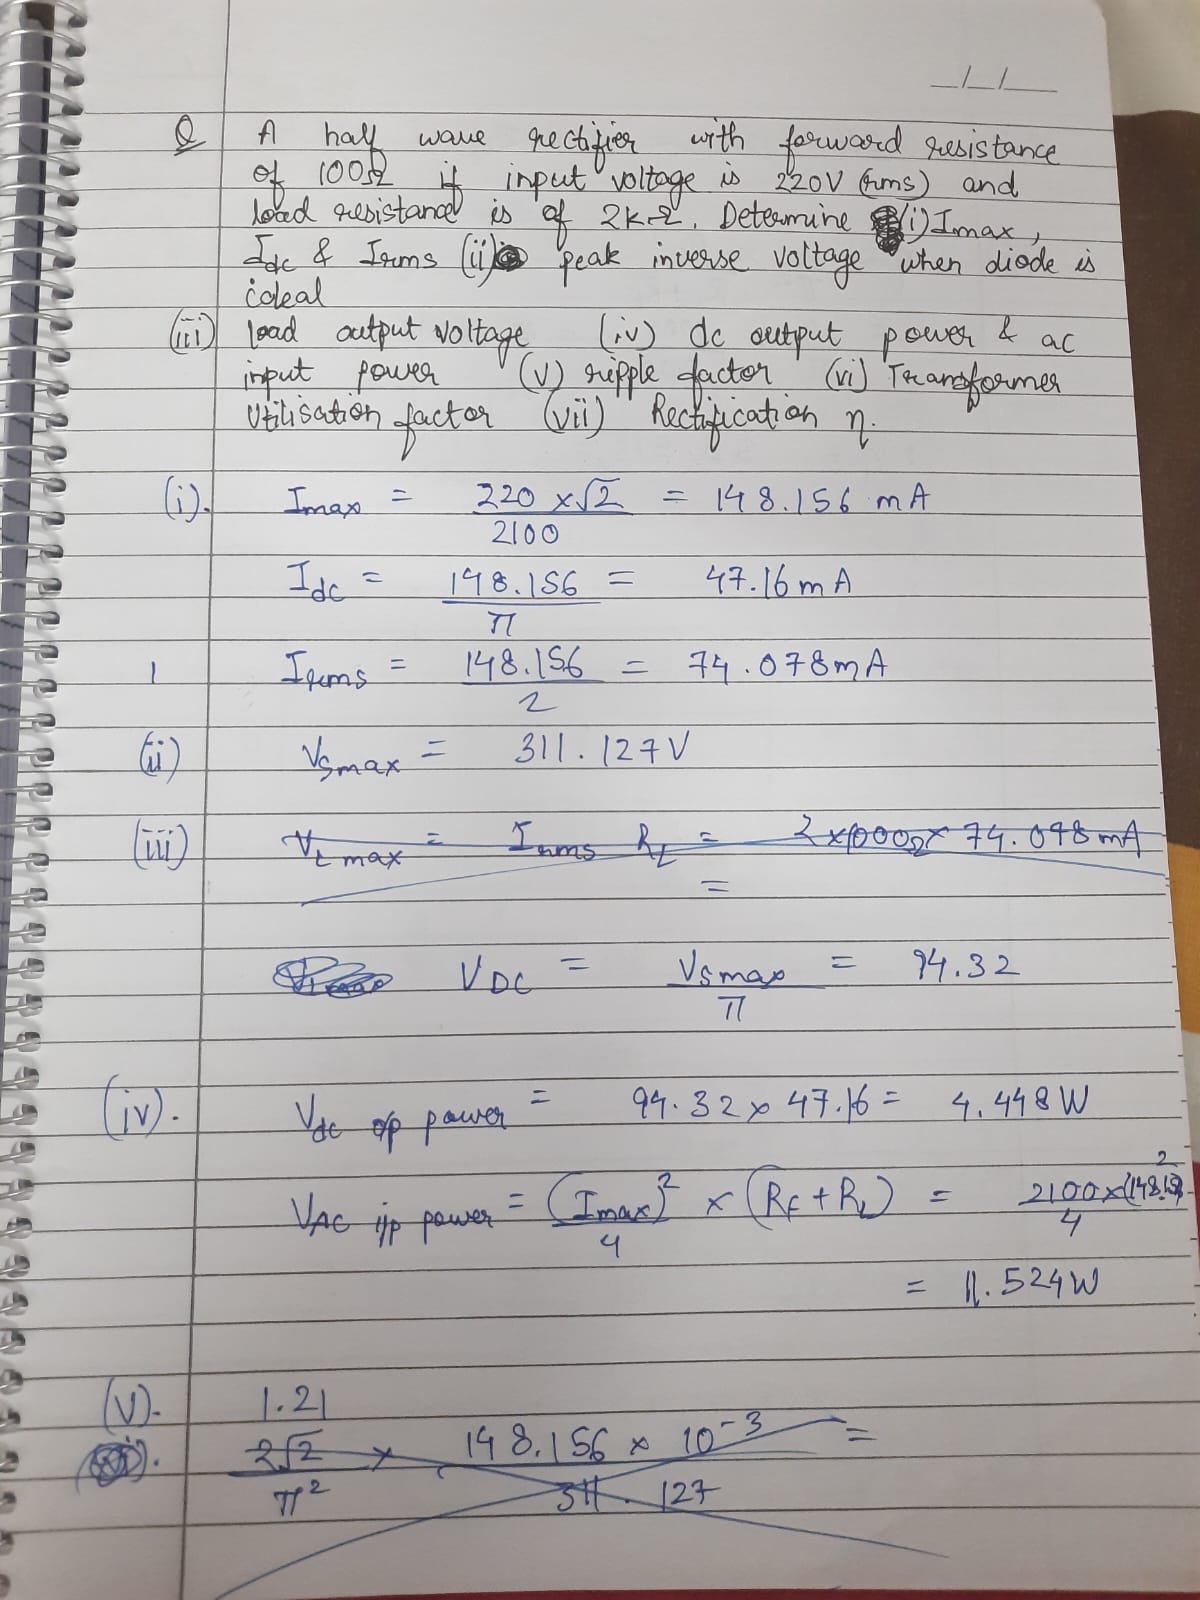 _/_/__
Q A half wave rectifier with forward resistance
of 100Ω if input voltage is 220V (rms) and
load resistance is of 2kΩ. Determine (i) Imax,
Idc & Irms (ii) peak inverse voltage when diode is
ideal
(iii) load output voltage (iv) dc output power & ac
input power (v) ripple factor (vi) Transformer
Utilisation factor (vii) Rectification η.
(i). Imax = 220 × √2 / 2100 = 148.156 mA
Idc = 148.156 / π = 47.16 mA
1 Irms = 148.156 / 2 = 74.078mA
(ii) Vsmax = 311.127V
(iii) VLmax = Irms RL = 2×1000Ω× 74.078mA
=
VDC = Vsmax / π = 94.32
(iv). Vdc o/p power = 94.32 × 47.16 = 4.448W
VAC i/p power = (Imax)² / 4 × (RF + RL) = 2100×(148.15)² / 4
= 11.524W
(V). 1.21
2√2 / π² × 148.156 × 10⁻³ / 311.127 =